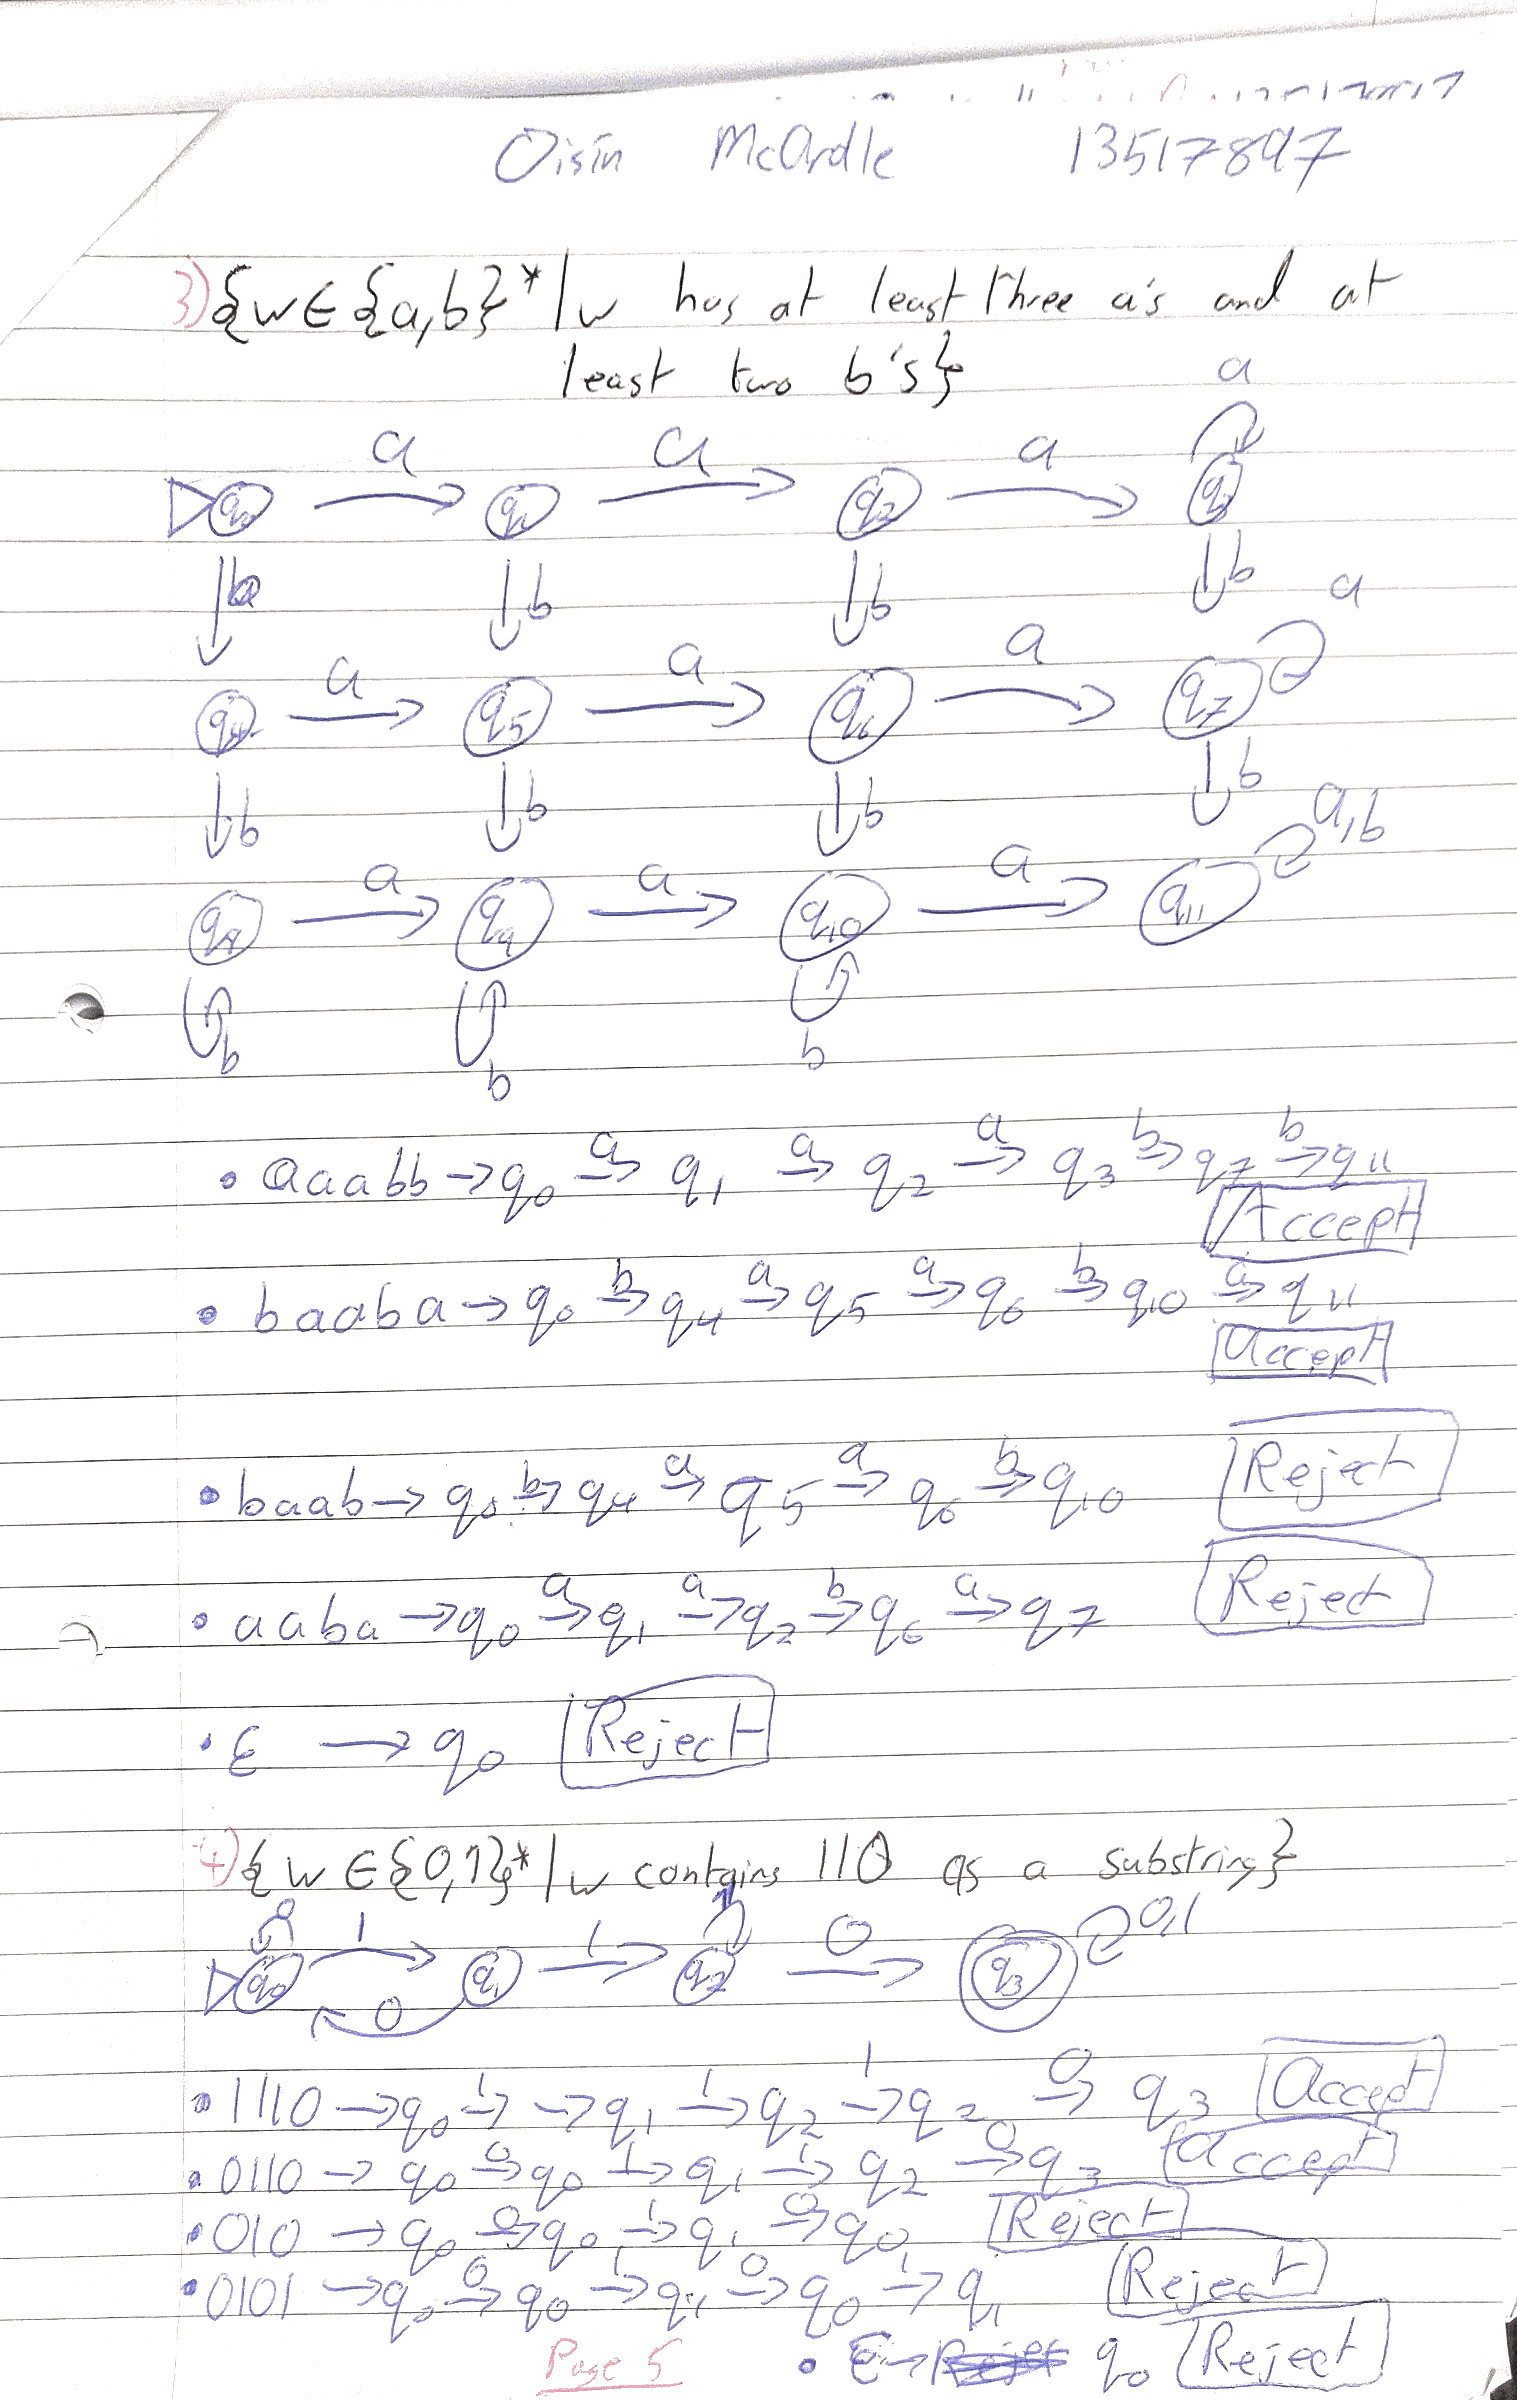 Oisín McArdle 13517897
3) {w ∈ {a,b}* | w has at least three a's and at
least two b's}
a
a a a
q0 q1 q2 q3
b b b b a
a a a
q4 q5 q6 q7
b b b b a,b
a a a
q8 q9 q10 q11
b b b
• aaabb → q0 a→ q1 a→ q2 a→ q3 b→ q7 b→ q11
Accept
• baaba → q0 b→ q4 a→ q5 a→ q6 b→ q10 a→ q11
Accept
• baab → q0 b→ q4 a→ q5 a→ q6 b→ q10 Reject
• aaba → q0 a→ q1 a→ q2 b→ q6 a→ q7 Reject
• ε → q0 Reject
4) {w ∈ {0,1}* | w contains 110 as a substring}
0 1 1 1 0 0,1
q0 q1 q2 q3
0
• 1110 → q0 1→ → q1 1→ q2 1→ q2 0→ q3 Accept
• 0110 → q0 0→ q0 1→ q1 1→ q2 0→ q3 Accept
• 010 → q0 0→ q0 1→ q1 0→ q0 Reject
• 0101 → q0 0→ q0 1→ q1 0→ q0 1→ q1 Reject
Page 5 • ε → q0 Reject